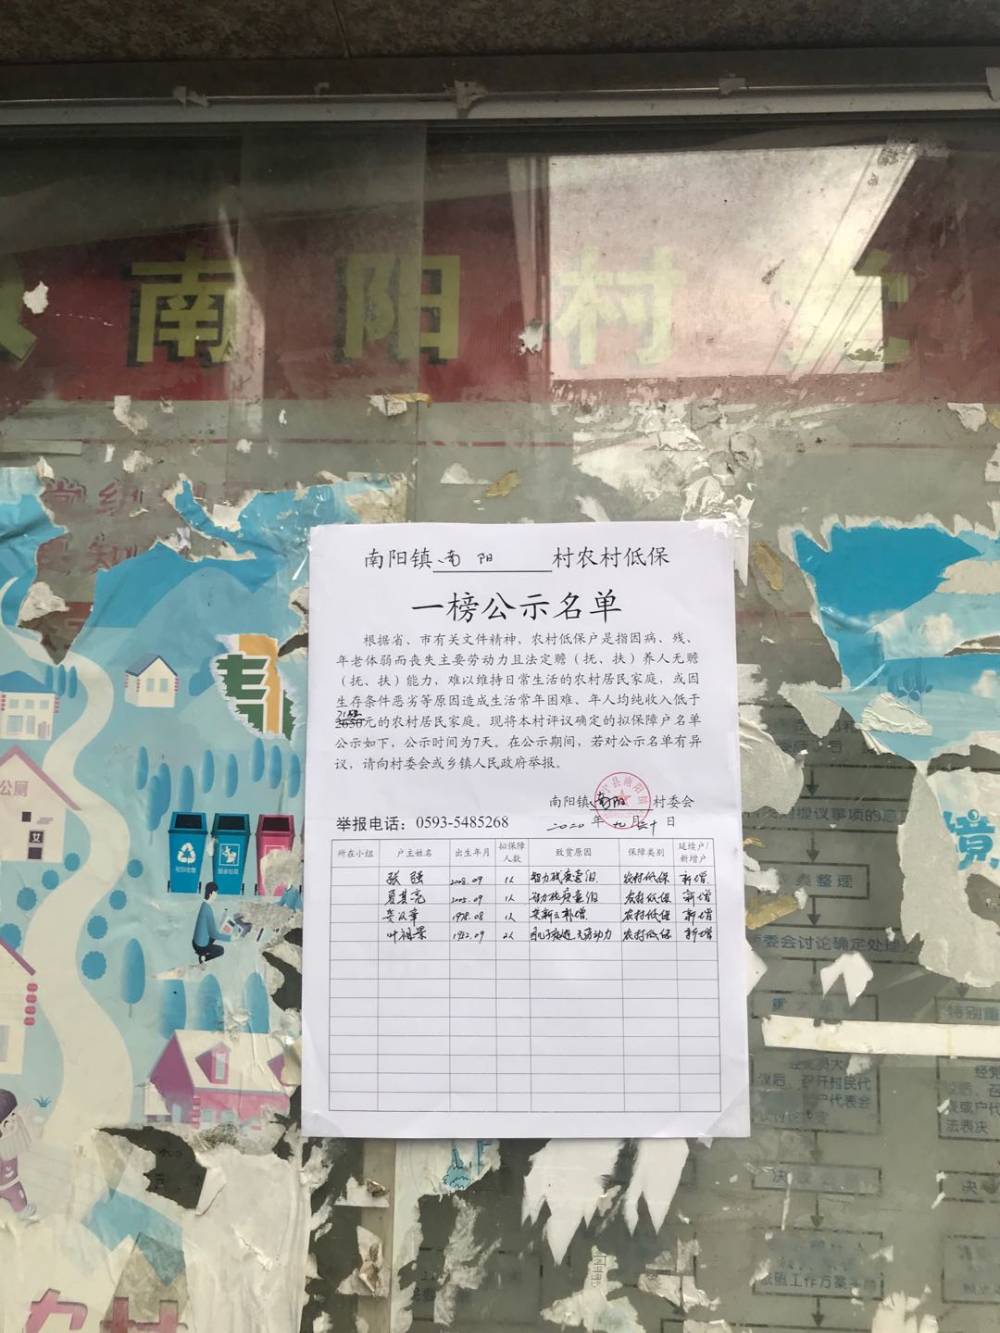 南阳村
南阳镇南阳村农村低保
一榜公示名单
根据省、市有关文件精神，农村低保户是指因病、残、
年老体弱而丧失主要劳动力且法定赡（抚、扶）养人无赡
（抚、扶）能力，难以维持日常生活的农村居民家庭，或因
生存条件恶劣等原因造成生活常年困难、年人均纯收入低于
元的农村居民家庭。现将本村评议确定的拟保障户名单
公示如下，公示时间为7天。在公示期间，若对公示名单有异
议，请向村委会或乡镇人民政府举报。
南阳镇南阳村委会
举报电话：0593-5485268
2020年九月 日
所在小组 户主姓名 出生年月 拟保障人数 致贫原因 保障类别 延续户/新增户
张强 2008.09 1人 智力残疾 农村低保 新增
2005.09 1人 农村低保 新增
1978.08 1人 农村低保 新增
叶祖荣 09 2人 无劳动力 农村低保 新增
公厕
整理
委会讨论确定处理
重大
特别重
议后、召开村民代
户代表会
经党
后、召
表或户代
法表决
决
决
工作方案